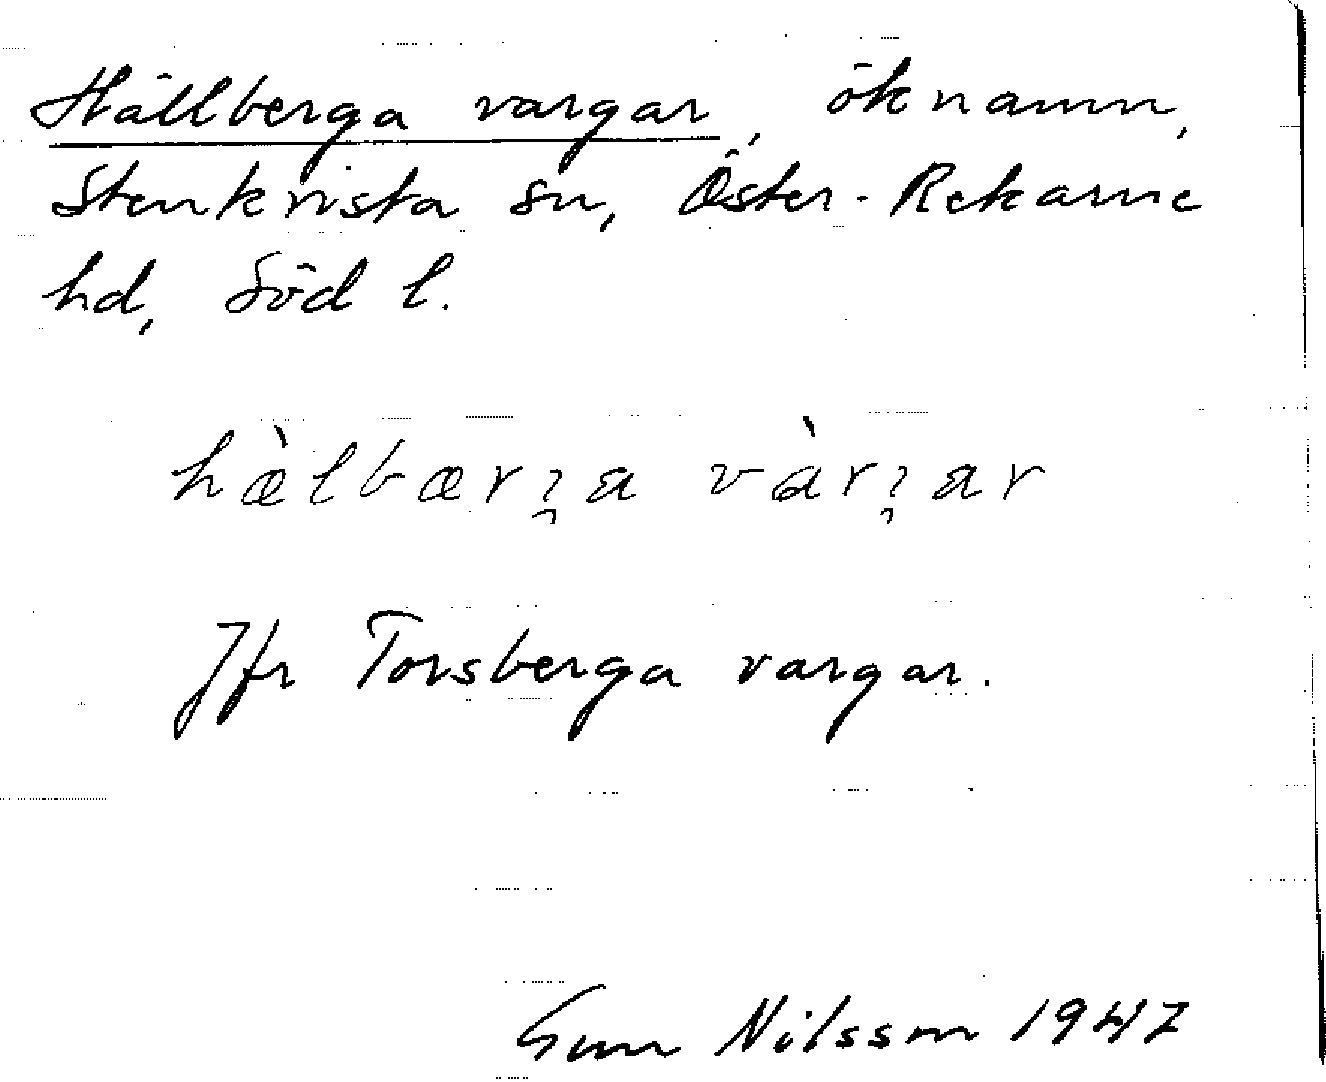 Hällberga vargar, öknamn,
Stenkvista sn, Öster-Rekarne
hd, Söd l.
hæ̀lbærɂ̡a vàrɂ̡ar
Jfr Torsberga vargar.
Gun Nilsson 1947